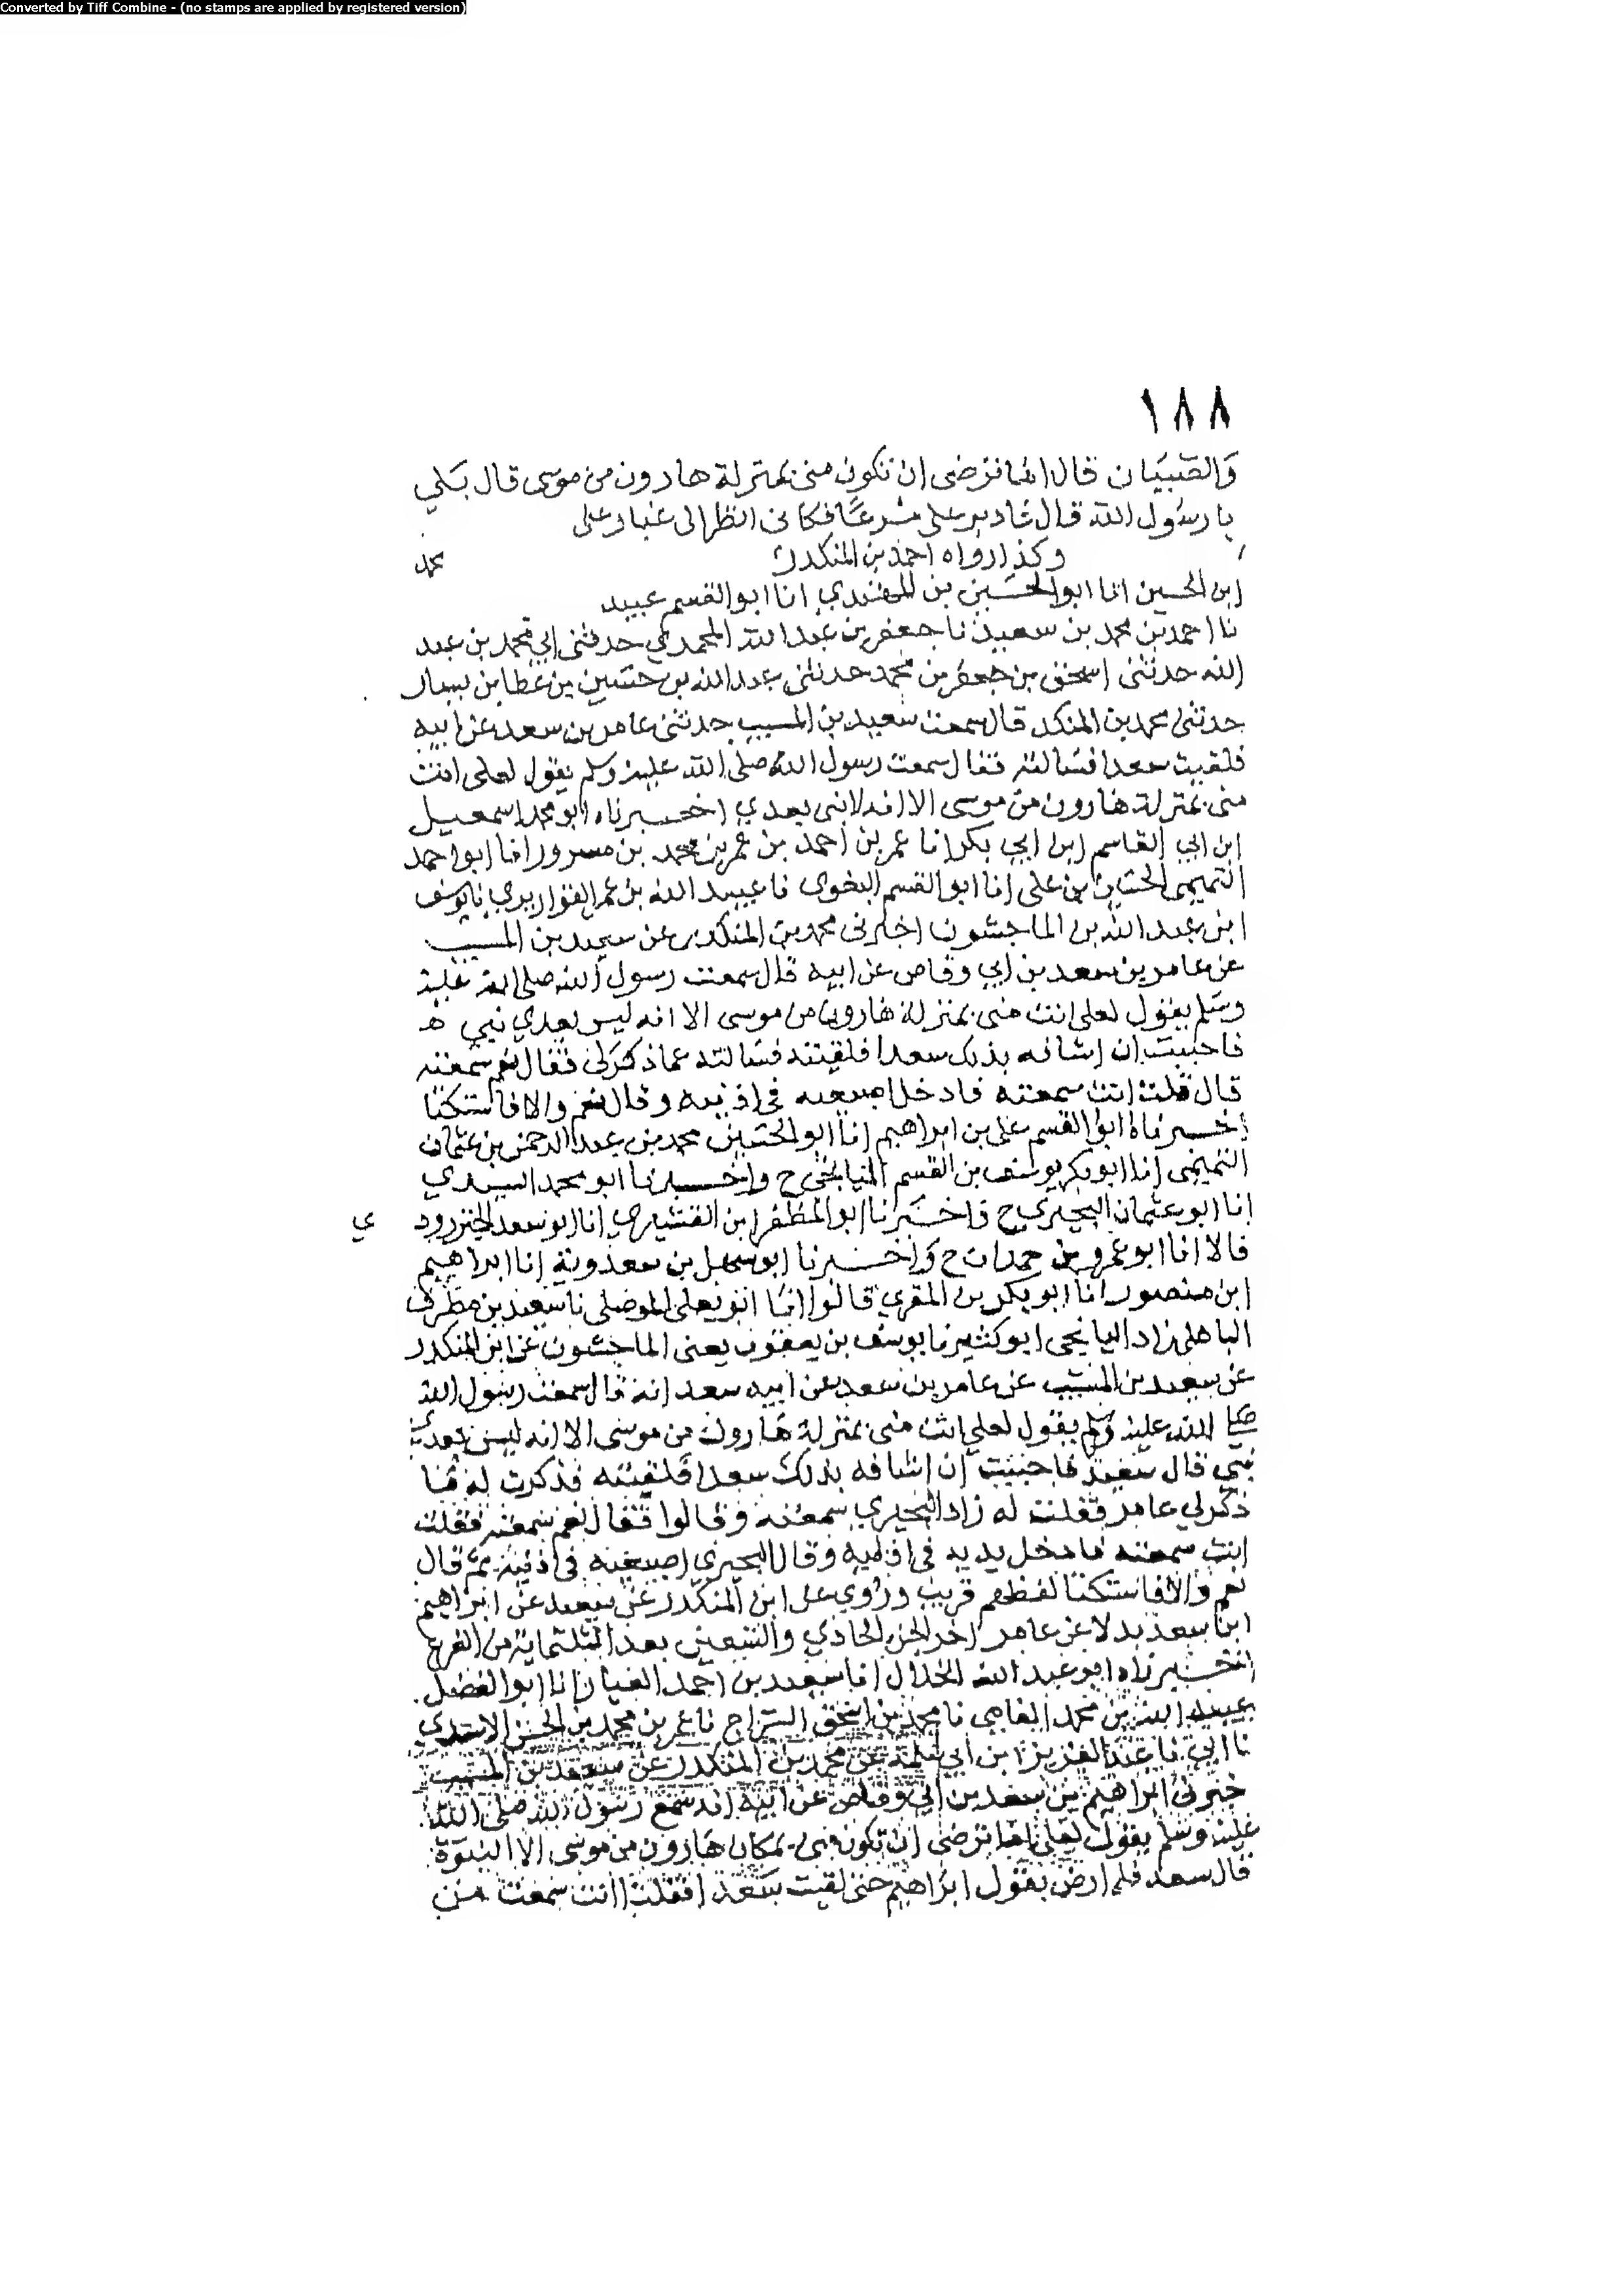 Converted by Tiff Combine - (no stamps are applied by registered version)
١٨٨
والصبيان قال اما ترضى ان تكون منى بمنزلة هارون من موسى قال بلي
يا رسول الله قال فادبر على مسرعا فكانى انظر الى غبار على
وكذا رواه احمد بن المنكدر محمد
ابن الحسين انا ابو الحسين بن المهتدي انا ابو القسم عبيد
نا احمد بن محمد بن سعيد نا جعفر بن عبد الله المحمدي حدثنى ابي محمد بن عبد
الله حدثنى اسحق بن جعفر بن محمد حدثنى عبد الله بن حسين بن عطا بن يسار
حدثنى محمد بن المنكدر قال سمعت سعيد بن المسيب حدثنى عامر بن سعد عن ابيه
فلقيت سعدا فسالته فقال سمعت رسول الله صلى الله عليه وسلم يقول لعلى انت
منى بمنزلة هارون من موسى الا انه لا نبى بعدي اخبرناه ابو محمد اسمعيل
ابن ابي القاسم ابن ابي بكر انا عمر بن احمد بن عمر بن محمد بن مسرور انا ابو احمد
التميمى الحسين بن على انا ابو القسم البغوى نا عبيد الله بن عمر القواريري نا يوسف
ابن عبد الله بن الماجشون اخبرنى محمد بن المنكدر عن سعيد بن المسيب
عن عامر بن سعد بن ابي وقاص عن ابيه قال سمعت رسول الله صلى الله عليه
وسلم يقول لعلى انت منى بمنزلة هارون من موسى الا انه ليس بعدي نبي ه
فاحببت ان اشافه بذلك سعدا فلقيته فسالته عما ذكر لى فقال نعم سمعته
قال قلت انت سمعته فادخل اصبعيه في اذنيه وقال نعم والا فاستكتا
اخبرناه ابو القسم على بن ابراهيم انا ابو الحسين محمد بن عبد الرحمن بن عثمان
التميمى انا ابو بكر يوسف بن القسم الميانجى ح واخبرنا ابو محمد السيدي
انا ابو عثمان البحيري ح واخبرنا ابو المظفر ابن القشيري انا ابو سعد الجنزرودي
قالا انا ابو عمرو بن حمدان ح واخبرنا ابو سهل بن سعدويه انا ابراهيم
ابن منصور انا ابو بكر بن المقري قالوا انا ابو يعلى الموصلى نا سعيد بن مطرف
الباهلى زاد الميانجى ابو كثير نا يوسف بن يعقوب يعنى الماجشون عن ابن المنكدر
عن سعيد بن المسيب عن عامر بن سعد عن ابيه سعد انه قال سمعت رسول الله
صلى الله عليه وسلم يقول لعلي انت منى بمنزلة هارون من موسى الا انه ليس بعدي
نبي قال سعيد فاحببت ان اشافه بذلك سعدا فلقيته فذكرت له ما
ذكر لي عامر فقلت له زاد البحيري سمعته وقالوا فقال نعم سمعته فقلت
انت سمعته فادخل يديه في اذنيه وقال البحيري اصبعيه في اذنيه ثم قال
نعم والا فاستكتا لفظهم قريب وروي على ابن المنكدر عن سعيد عن ابراهيم
ابن سعد بدلا عن عامر اخر الجز الحادي والتسعين بعد الثلثماية من الفرع
اخبرناه ابو عبد الله الخلال انا سعيد بن احمد العيار انا ابو الفضل
عبيد الله بن محمد الفامي نا محمد بن اسحق السراج نا عمر بن محمد بن الحسن الاسدي
نا ابي نا عبد العزيز ابن ابي سلمة عن محمد بن المنكدر عن سعيد بن المسيب
خبرنى ابراهيم بن سعد بن ابي وقاص عن ابيه انه سمع رسول الله صلى الله
عليه وسلم يقول لعلى اما ترضى ان تكون منى بمكان هارون من موسى الا النبوة
قال سعد فلم ارض بقول ابراهيم حتى لقيت سعدا فقلت اانت سمعت من